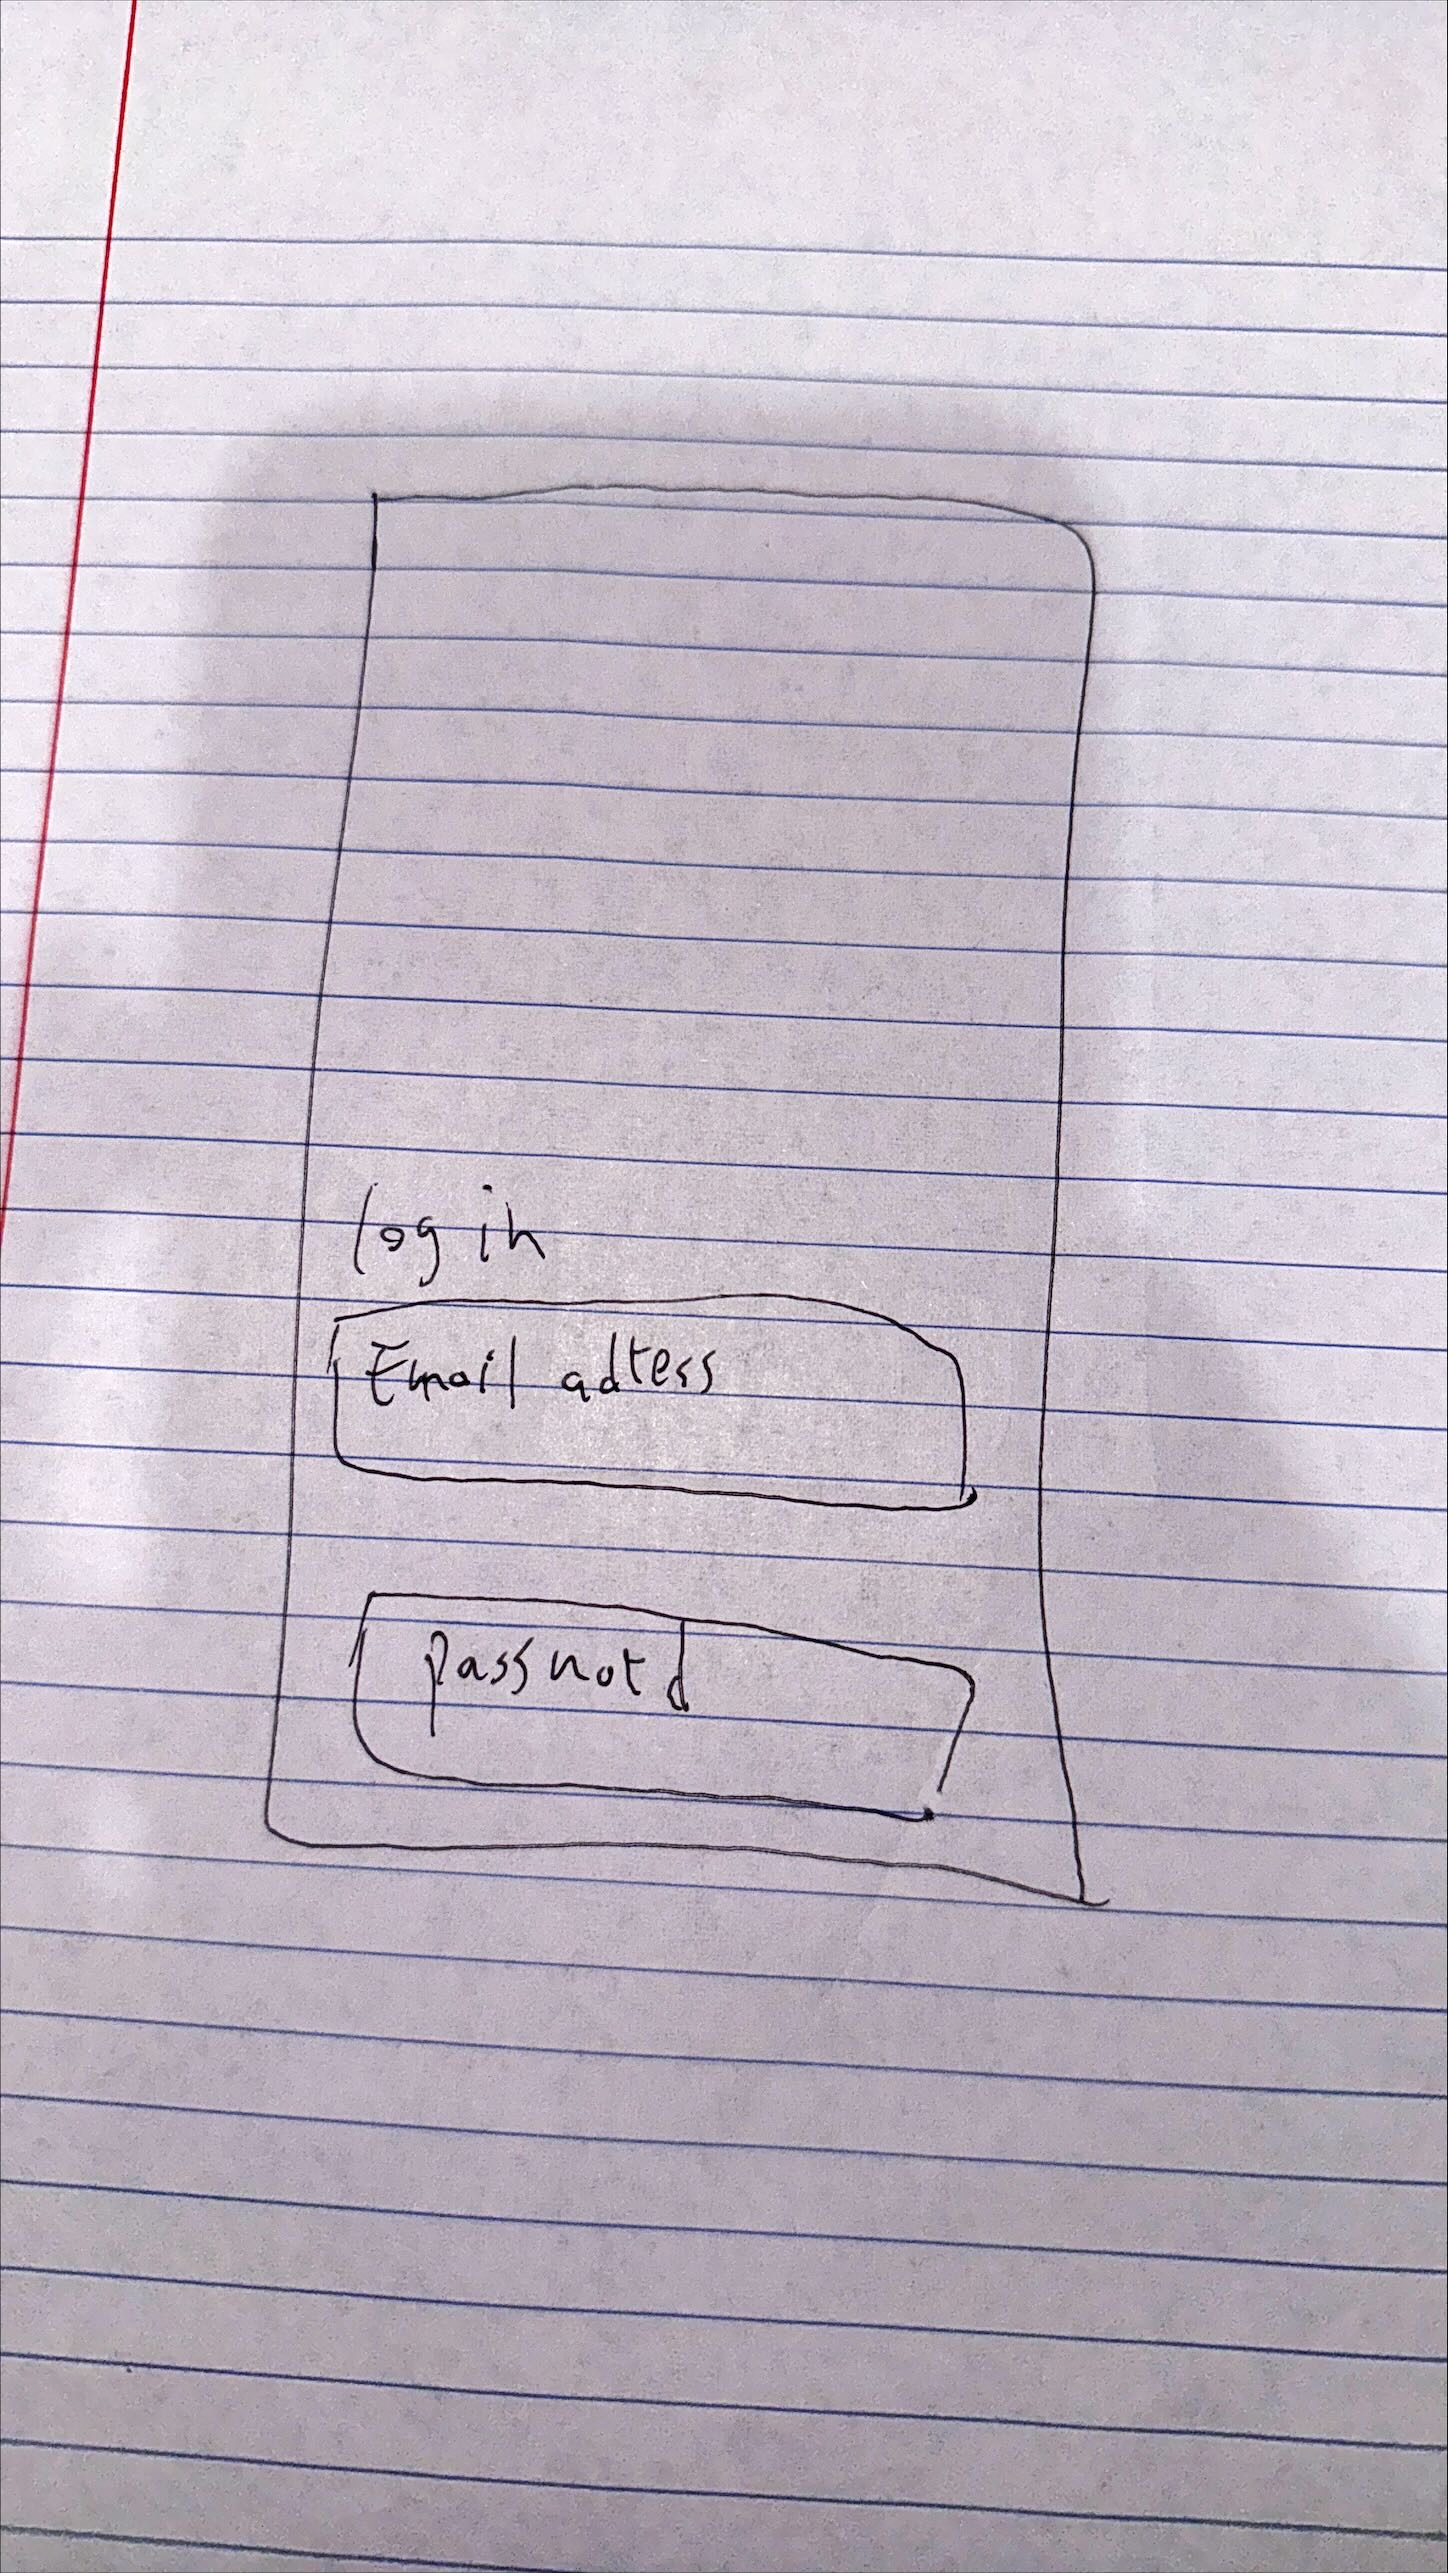 log in
Email adtess
passnotd